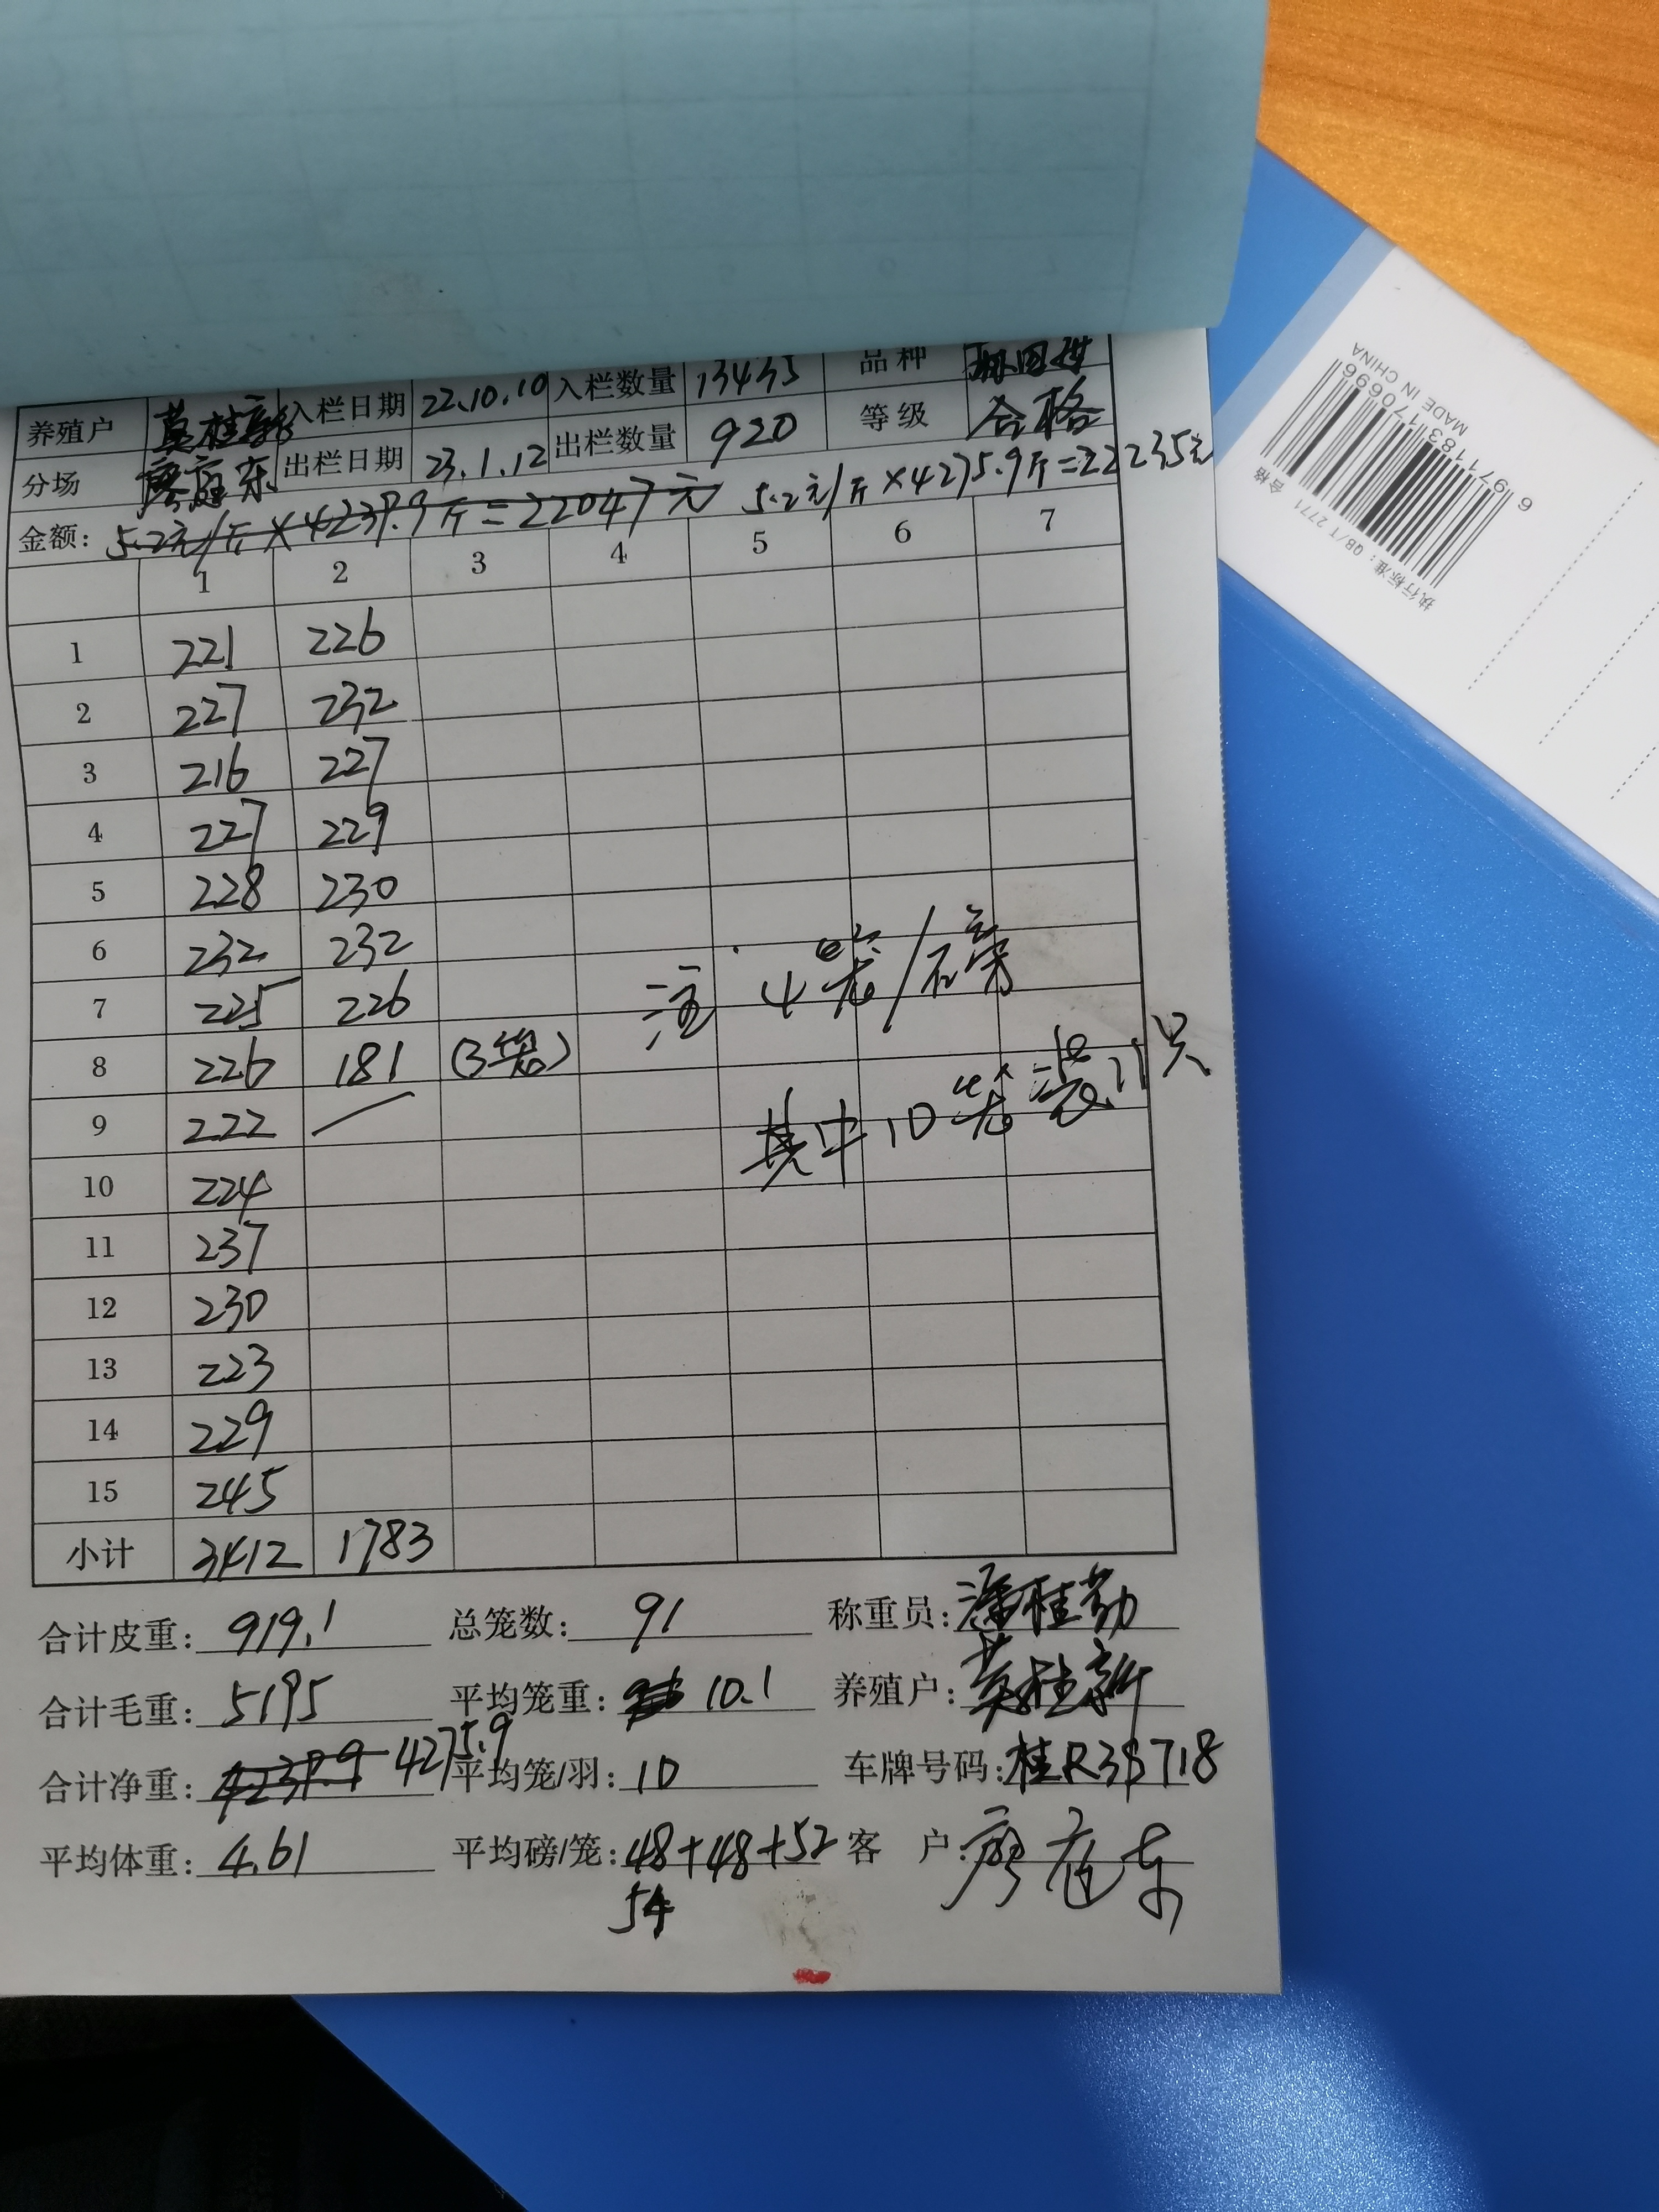 养殖户 莫桂新 入栏日期 22.10.10 入栏数量 13435 品种
分场 廖庭东 出栏日期 23.1.12 出栏数量 920 等级 合格
金额: 5.2元/斤×4239.9斤=22047元 5.2元/斤×4275.9斤=22235元
1 2 3 4 5 6 7
1 221 226
2 227 232
3 216 227
4 227 229
5 228 230
6 232 232
7 225 226
8 226 181 (3笼)
9 222
10 224
11 237
12 230
13 223
14 229
15 245
小计 3412 1783
注 4笼/磅
其中10笼装11只
合计皮重: 919.1 总笼数: 91 称重员: 潘桂勤
合计毛重: 5195 平均笼重: 10.1 养殖户: 莫桂新
合计净重: 4239.9 4275.9 平均笼/羽: 10 车牌号码: 桂R3S718
平均体重: 4.61 平均磅/笼: 48+48+52 客户: 廖庭东
54
6 971183 170696
MADE IN CHINA
执行标准: QB/T 2771 合格